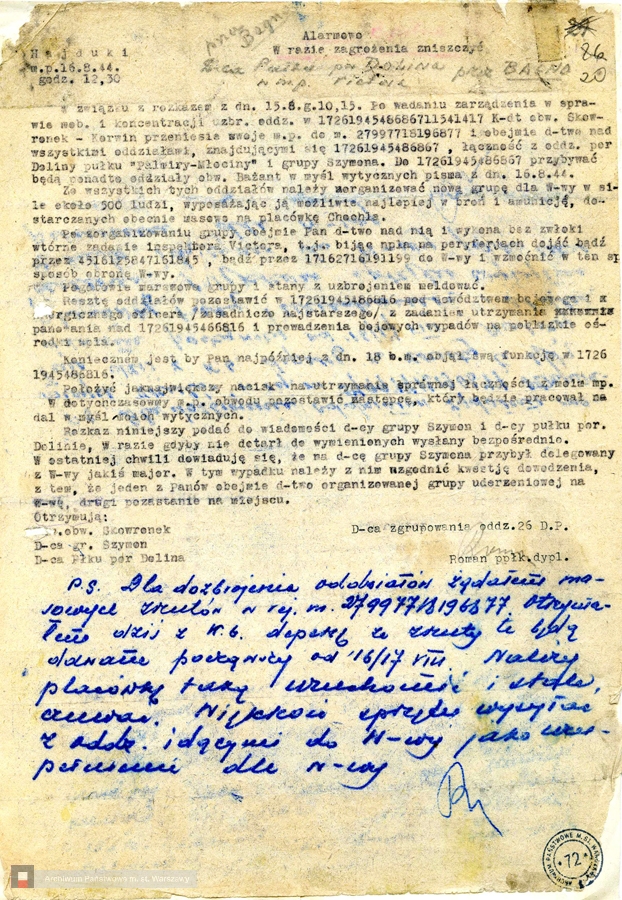 Alarmowo
W razie zagrożenia zniszczyć
przez Bagno
84
86
20
H a j d u k i
m.p.16.8.44.
godz. 12,30
D-ca Pułku por DOLINA
w m.p.
przez BAGNO
W związku z rozkazem z dn. 15.8.g.10,15. Po wadaniu zarządzenia w spra-
wie mob. i koncentracji uzbr. oddz. w 1726194548686711541417 K-dt obw. Skow-
ronek - Korwin przeniesie swoje m.p. do m. 27997718196877 i obejmie d-two nad
wszystkimi oddziałami, znajdującymi się 17261945486867 , łączność z oddz. por
Doliny pułku "Palmiry-Młociny" i grupy Szymona. Do 17261945486867 przybywać
będą ponadto oddziały obw. Bażant w myśl wytycznych pisma z dn. 16.8.44.
Ze wszystkich tych oddziałów należy zorganizować nową grupę dla W-wy w si-
le około 500 ludzi, wyposażając ją możliwie najlepiej w broń i amunicję, do-
starczanych obecnie masowo na placówkę Chochla.
Po zorganizowaniu grupy obejmie Pan d-two nad nią i wykona bez zwłoki
wtórne zadanie inspektora Victora, t.j. bijąc npla na peryferjach dojść bądź
przez 4516125847161845 , bądź przez 17162716191199 do W-wy i wzmócnić w ten sp
sposób obronę W-wy.
Pogotowie marszowe grupy i stany z uzbrojeniem meldować.
Resztę oddziałów pozostawić w 17261945486816 pod dowództwem bojowego i e
nergicznego oficera /zasadniczo najstarszego/, z zadaniem utrzymania
panowania nad 17261945466816 i prowadzenia bojowych wypadów na pobliskie oś-
rodki npla.
Koniecznem jest by Pan najpóźniej z dn. 18 b.m. objął swą funkcję w 1726
1945486816.
Położyć jaknajwiększy nacisk na utrzymanie sprawnej łączności z moim mp.
W dotychczasowym m.p. obwodu pozostawić zastępcę, który będzie pracował na
dal w myśl moich wytycznych.
Rozkaz niniejszy podać do wiadomości d-cy grupy Szymon i d-cy pułku por.
Dolinie, W razie gdyby nie dotarł do wymienionych wysłany bezpośrednio.
W ostatniej chwili dowiaduję się, że na d-cę grupy Szymona przybył delegowany
z W-wy jakiś major. W tym wypadku należy z nim uzgodnić kwestję dowodzenia,
z tem, że jeden z Panów obejmie d-two organizowanej grupy uderzeniowej na
W-wę, drugi pozostanie na miejscu.
Otrzymują:
obw. Skowronek
D-ca gr. Szymon
D-ca Płku por Dolina
D-ca zgrupowania oddz.26 D.P.
Roman
Roman ppłk.dypl.
P.S. Dla dozbrojenia oddziałów żądałem ma-
sowych zrzutów w rej. m. 27997718196877. Otrzyma-
łem dziś z K.G. depeszę że zrzuty te będą
dokonane począwszy od 16/17 VIII Należy
placówkę taką uruchomić i stale
czuwać. Większość sprzętu wysyłać
z oddz. idącymi do W-wy jako uzu-
pełnienie dla W-wy
ARCHIWUM PAŃSTWOWE M. ST. WARSZAWY
72
Archiwum Państwowe m. st. Warszawy